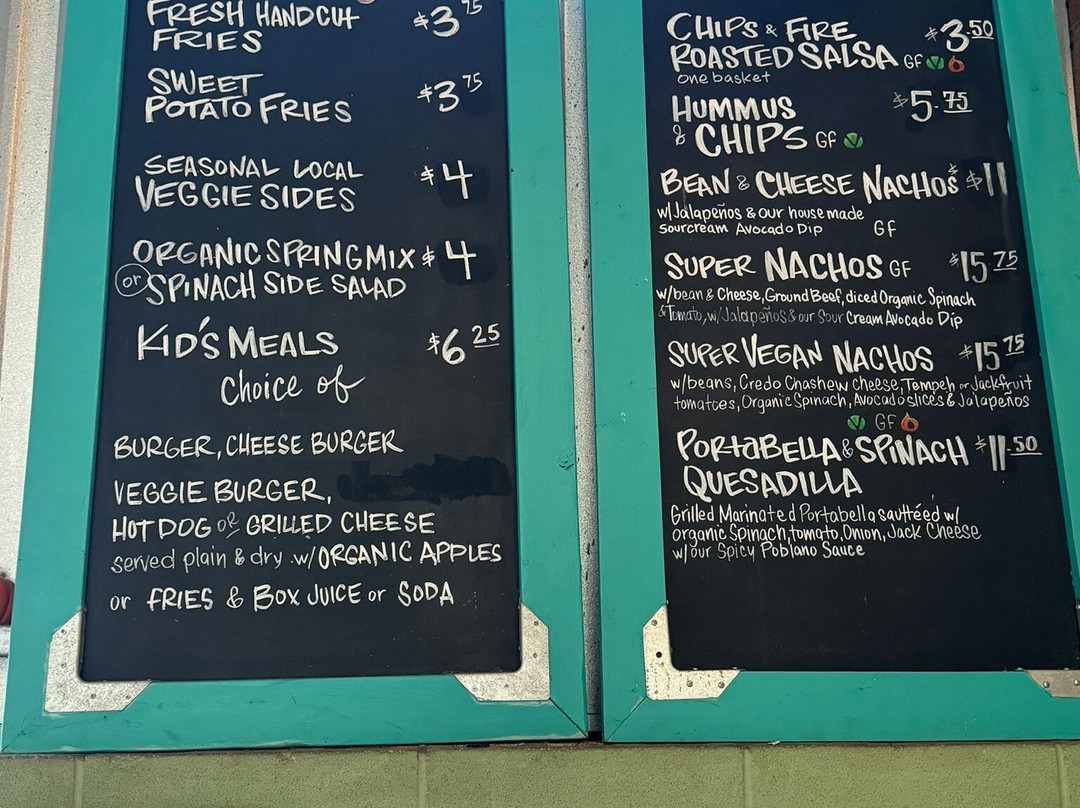 FRESH HANDCUT $3 75
FRIES
SWEET
POTATO FRIES $3 75
SEASONAL LOCAL
VEGGIE SIDES $4
ORGANIC SPRING MIX $4
or SPINACH SIDE SALAD
KID'S MEALS $6 25
Choice of
BURGER, CHEESE BURGER
VEGGIE BURGER,
HOT DOG or GRILLED CHEESE
served plain & dry w/ ORGANIC APPLES
or FRIES & BOX JUICE or SODA
CHIPS & FIRE $3.50
ROASTED SALSA GF
one basket
HUMMUS $5.75
& CHIPS GF
BEAN & CHEESE NACHOS $11
w/Jalapeños & our house made
sourcream Avocado Dip GF
SUPER NACHOS GF $15 75
w/bean & Cheese, Ground Beef, diced Organic Spinach
& Tomato, w/Jalapeños & our Sour Cream Avocado Dip
SUPER VEGAN NACHOS $15 75
w/beans, Credo Chashew Cheese, Tempeh or Jackfruit
tomatoes, Organic Spinach, Avocado slices & Jalapeños
GF
PORTABELLA & SPINACH $11.50
QUESADILLA
Grilled Marinated Portabella sautéed w/
organic Spinach, tomato, Onion, Jack Cheese
w/our Spicy Poblano Sauce